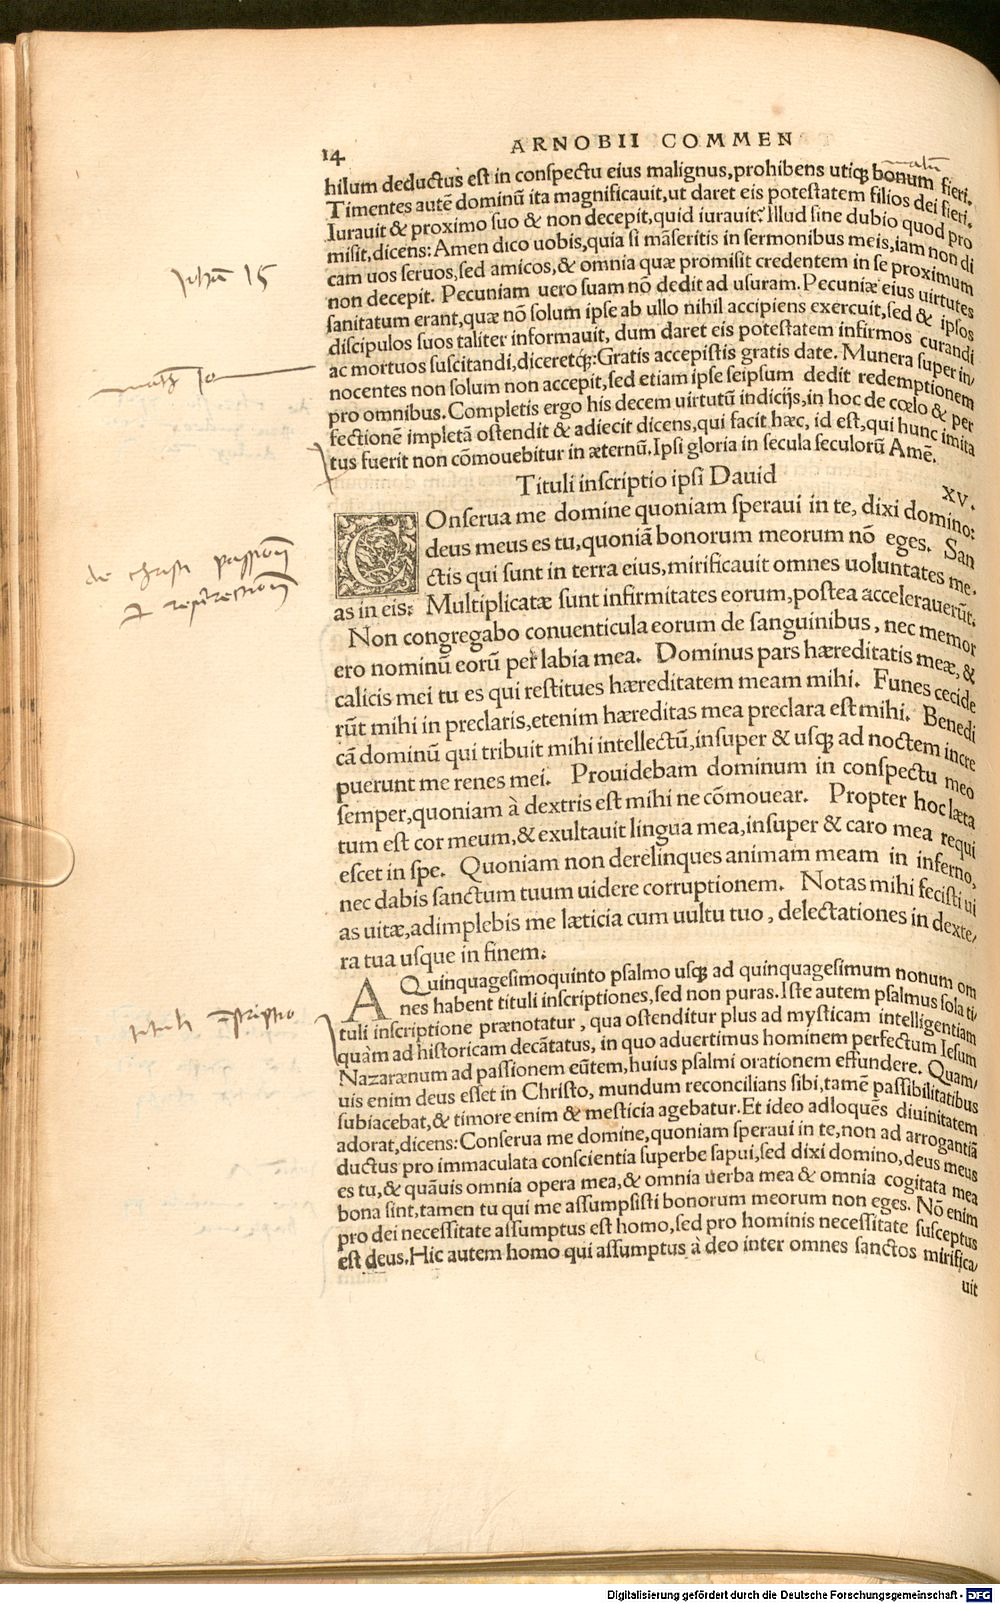 14
ARNOBII COMMEN
malū
hilum deductus est in conspectu eius malignus,prohibens utiqꝫ bonum fieri.
Timentes autē dominū ita magnificauit,ut daret eis potestatem filios dei fieri.
Iurauit & proximo suo & non decepit,quid iurauit? Illud sine dubio quod pro
misit,dicens: Amen dico uobis,quia si māseritis in sermonibus meis,iam non di
Johān 15
cam uos seruos,sed amicos,& omnia quæ promisit credentem in se proximum
non decepit. Pecuniam uero suam nō dedit ad usuram. Pecuniæ eius uirtutes
sanitatum erant,quæ nō solum ipse ab ullo nihil accipiens exercuit,sed & ipsos
discipulos suos taliter informauit, dum daret eis potestatem infirmos curandi
ac mortuos suscitandi,diceretqꝫ:Gratis accepistis gratis date. Munera super in/
math 10
nocentes non solum non accepit,sed etiam ipse seipsum dedit redemptionem
pro omnibus. Completis ergo his decem uirtutū indicijs,in hoc de cœlo & per
fectionē impletā ostendit & adiecit dicens,qui facit hæc, id est,qui hunc imita
tus fuerit non cōmouebitur in æternū.Ipsi gloria in secula seculorū Amē.
Tituli inscriptio ipsi Dauid
XV.
COnserua me domine quoniam speraui in te, dixi domino:
deus meus es tu,quoniā bonorum meorum nō eges. San
ctis qui sunt in terra eius,mirificauit omnes uoluntates me.
de christi passionē
et resurrectionē
as in eis: Multiplicatæ sunt infirmitates eorum,postea accelerauerūt.
Non congregabo conuenticula eorum de sanguinibus, nec memor
ero nominū eorū per labia mea. Dominus pars hæreditatis meæ, &
calicis mei tu es qui restitues hæreditatem meam mihi. Funes cecide
rūt mihi in preclaris,etenim hæreditas mea preclara est mihi. Benedi
cā dominū qui tribuit mihi intellectū,insuper & usqꝫ ad noctem incre
puerunt me renes mei. Prouidebam dominum in conspectu meo
semper,quoniam à dextris est mihi ne cōmouear. Propter hoc læta
tum est cor meum,& exultauit lingua mea,insuper & caro mea requi
escet in spe. Quoniam non derelinques animam meam in inferno,
nec dabis sanctum tuum uidere corruptionem. Notas mihi fecisti ui
as uitæ,adimplebis me læticia cum uultu tuo, delectationes in dexte/
ra tua usque in finem.
A Quinquagesimoquinto psalmo usqꝫ ad quinquagesimum nonum om
nes habent tituli inscriptiones,sed non puras. Iste autem psalmus sola ti/
tituli īscriptio
tuli inscriptione prænotatur, qua ostenditur plus ad mysticam intelligentiam
quàm ad historicam decātatus, in quo aduertimus hominem perfectum Iesum
Nazarænum ad passionem eūtem,huius psalmi orationem effundere. Quam/
uis enim deus esset in Christo, mundum reconcilians sibi,tamē passibilitatibus
subiacebat,& timore enim & mesticia agebatur.Et ideo adloquēs diuinitatem
adorat,dicens:Conserua me domine,quoniam speraui in te,non ad arrogantiā
ductus pro immaculata conscientia superbe sapui,sed dixi domino,deus meus
es tu,& quāuis omnia opera mea,& omnia uerba mea & omnia cogitata mea
bona sint,tamen tu qui me assumpsisti bonorum meorum non eges. Nō enim
pro dei necessitate assumptus est homo,sed pro hominis necessitate susceptus
est deus.Hic autem homo qui assumptus à deo inter omnes sanctos mirifica/
uit
Digitalisierung gefördert durch die Deutsche Forschungsgemeinschaft - DFG